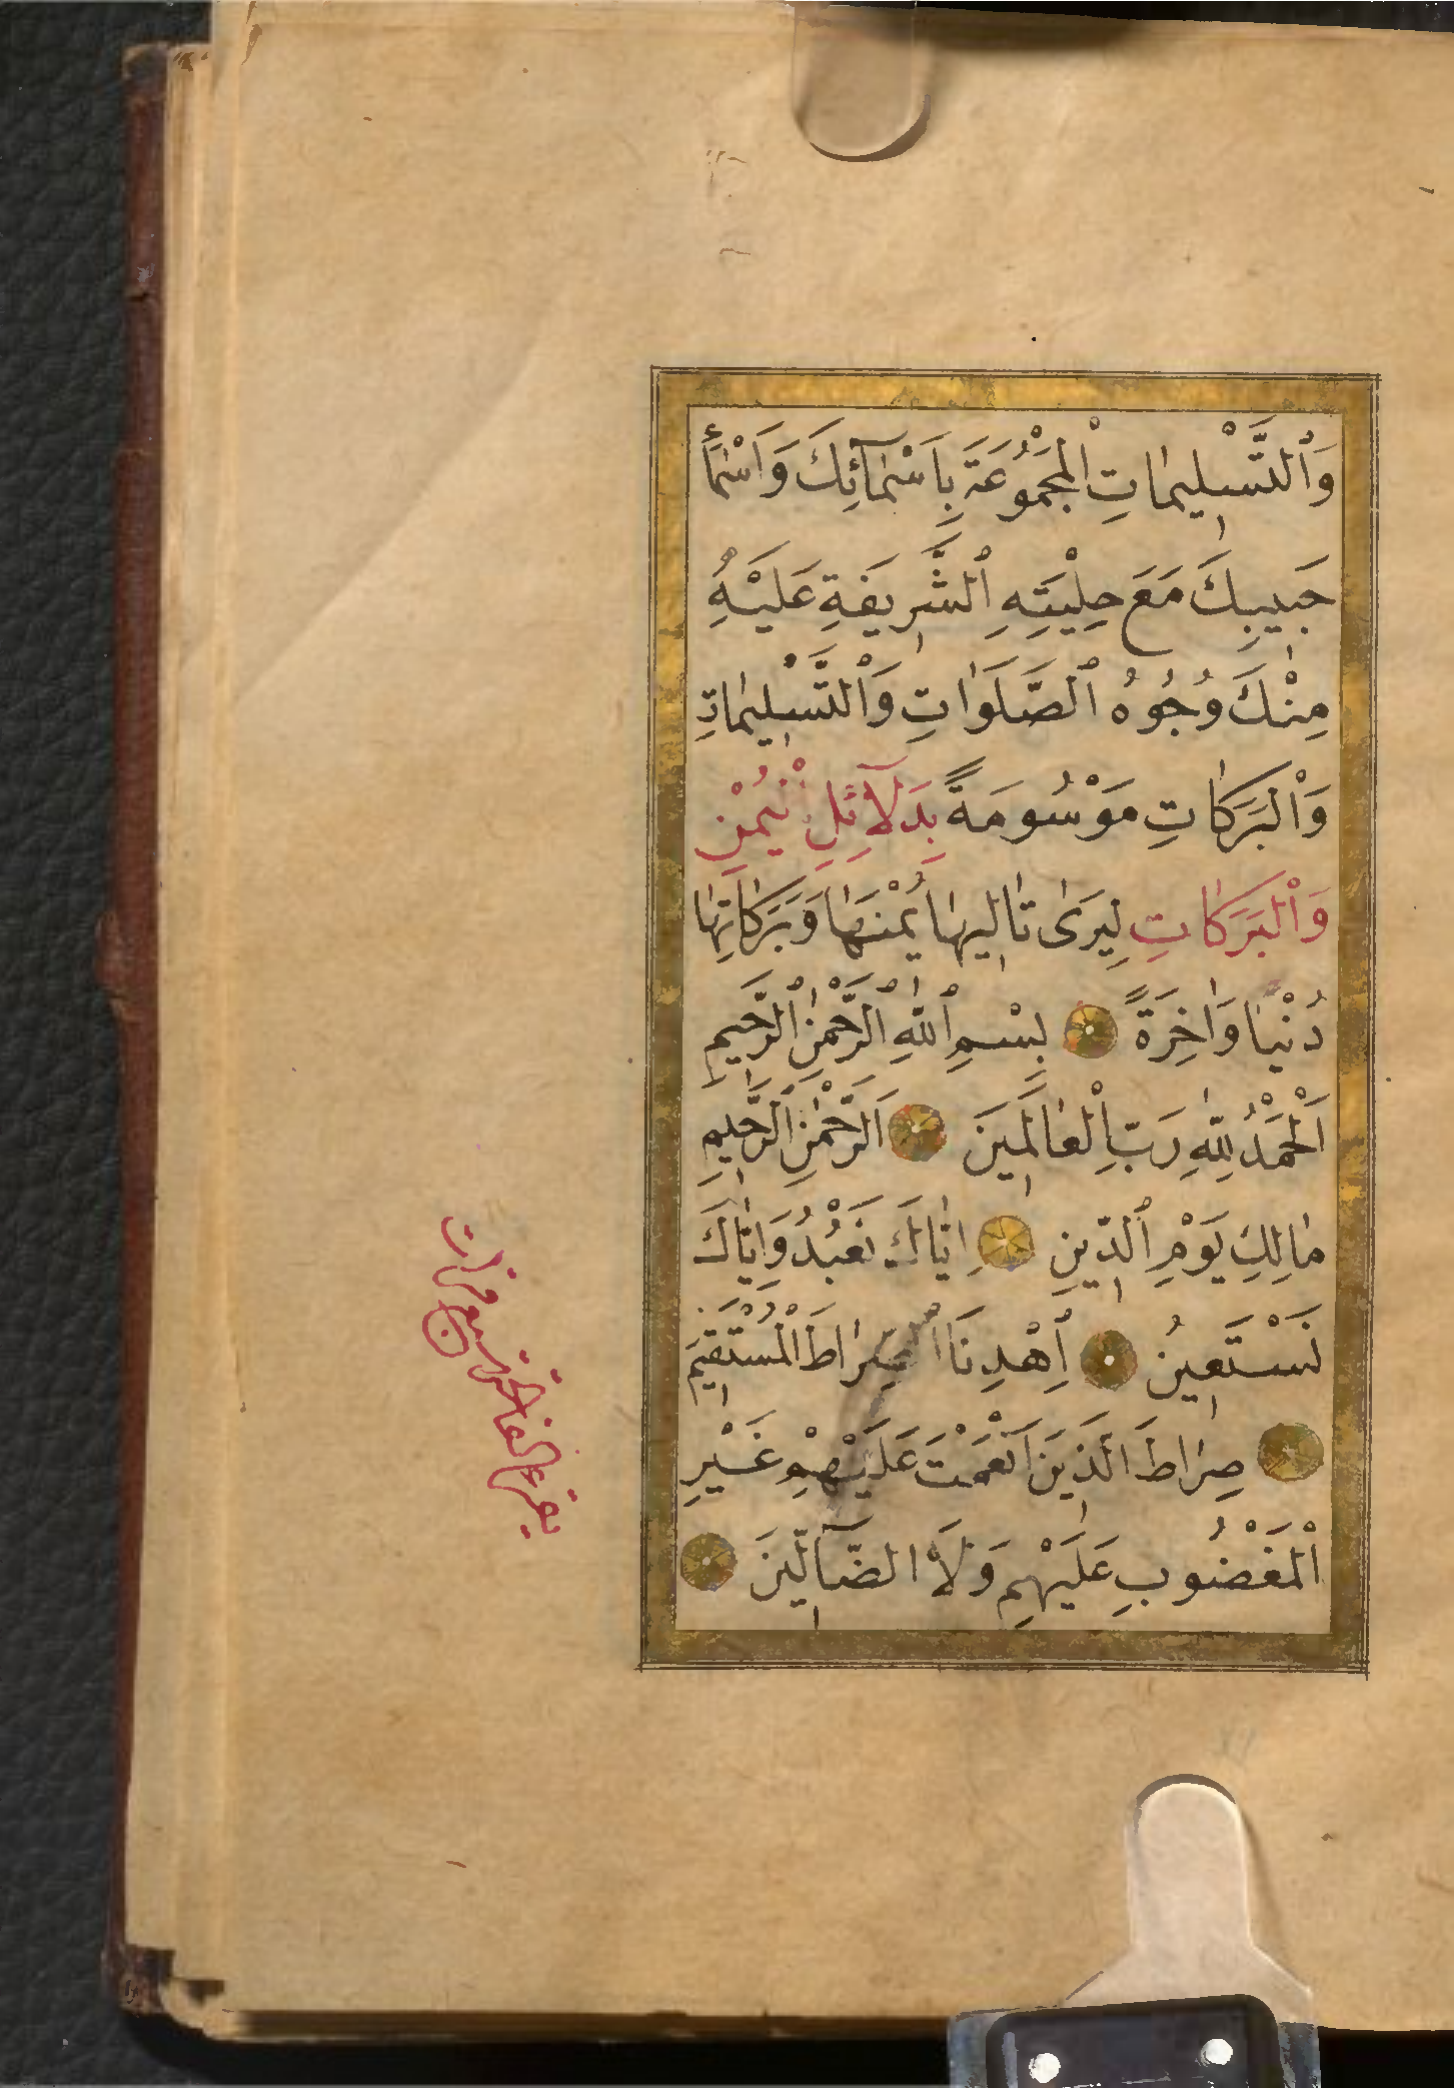 وَٱلتَّسْلِيمَاتِ الْمَجْمُوعَةَ بِاَسْمَآئِكَ وَاَسْمَآءِ
حَبِيبِكَ مَعَ حِلْيَتِهِ ٱلشَّرِيفَةِ عَلَيْهِ
مِنْكَ وُجُوهُ ٱلصَّلَوَاتِ وَٱلتَّسْلِيمَاتِ
وَٱلْبَرَكَاتِ مَوْسُومَةً بِدَلَآئِلِ الْيُمْنِ
وَٱلْبَرَكَاتِ لِيَرٰى تَالِيهَا يُمْنَهَا وَبَرَكَاتِهَا
دُنْيَا وَاٰخِرَةً بِسْمِ ٱللّٰهِ ٱلرَّحْمٰنِ ٱلرَّحِيمِ
اَلْحَمْدُ لِلّٰهِ رَبِّ الْعَالَمِينَ اَلرَّحْمٰنِ ٱلرَّحِيمِ
مَالِكِ يَوْمِ ٱلدِّينِ اِيَّاكَ نَعْبُدُ وَاِيَّاكَ
نَسْتَعِينُ اِهْدِنَا الصِّرَاطَ الْمُسْتَقِيمَ
صِرَاطَ الَّذِينَ اَنْعَمْتَ عَلَيْهِمْ غَيْرِ
الْمَغْضُوبِ عَلَيْهِمْ وَلَا الضَّآلِّينَ
يقرء الفاتحة سبع مرات